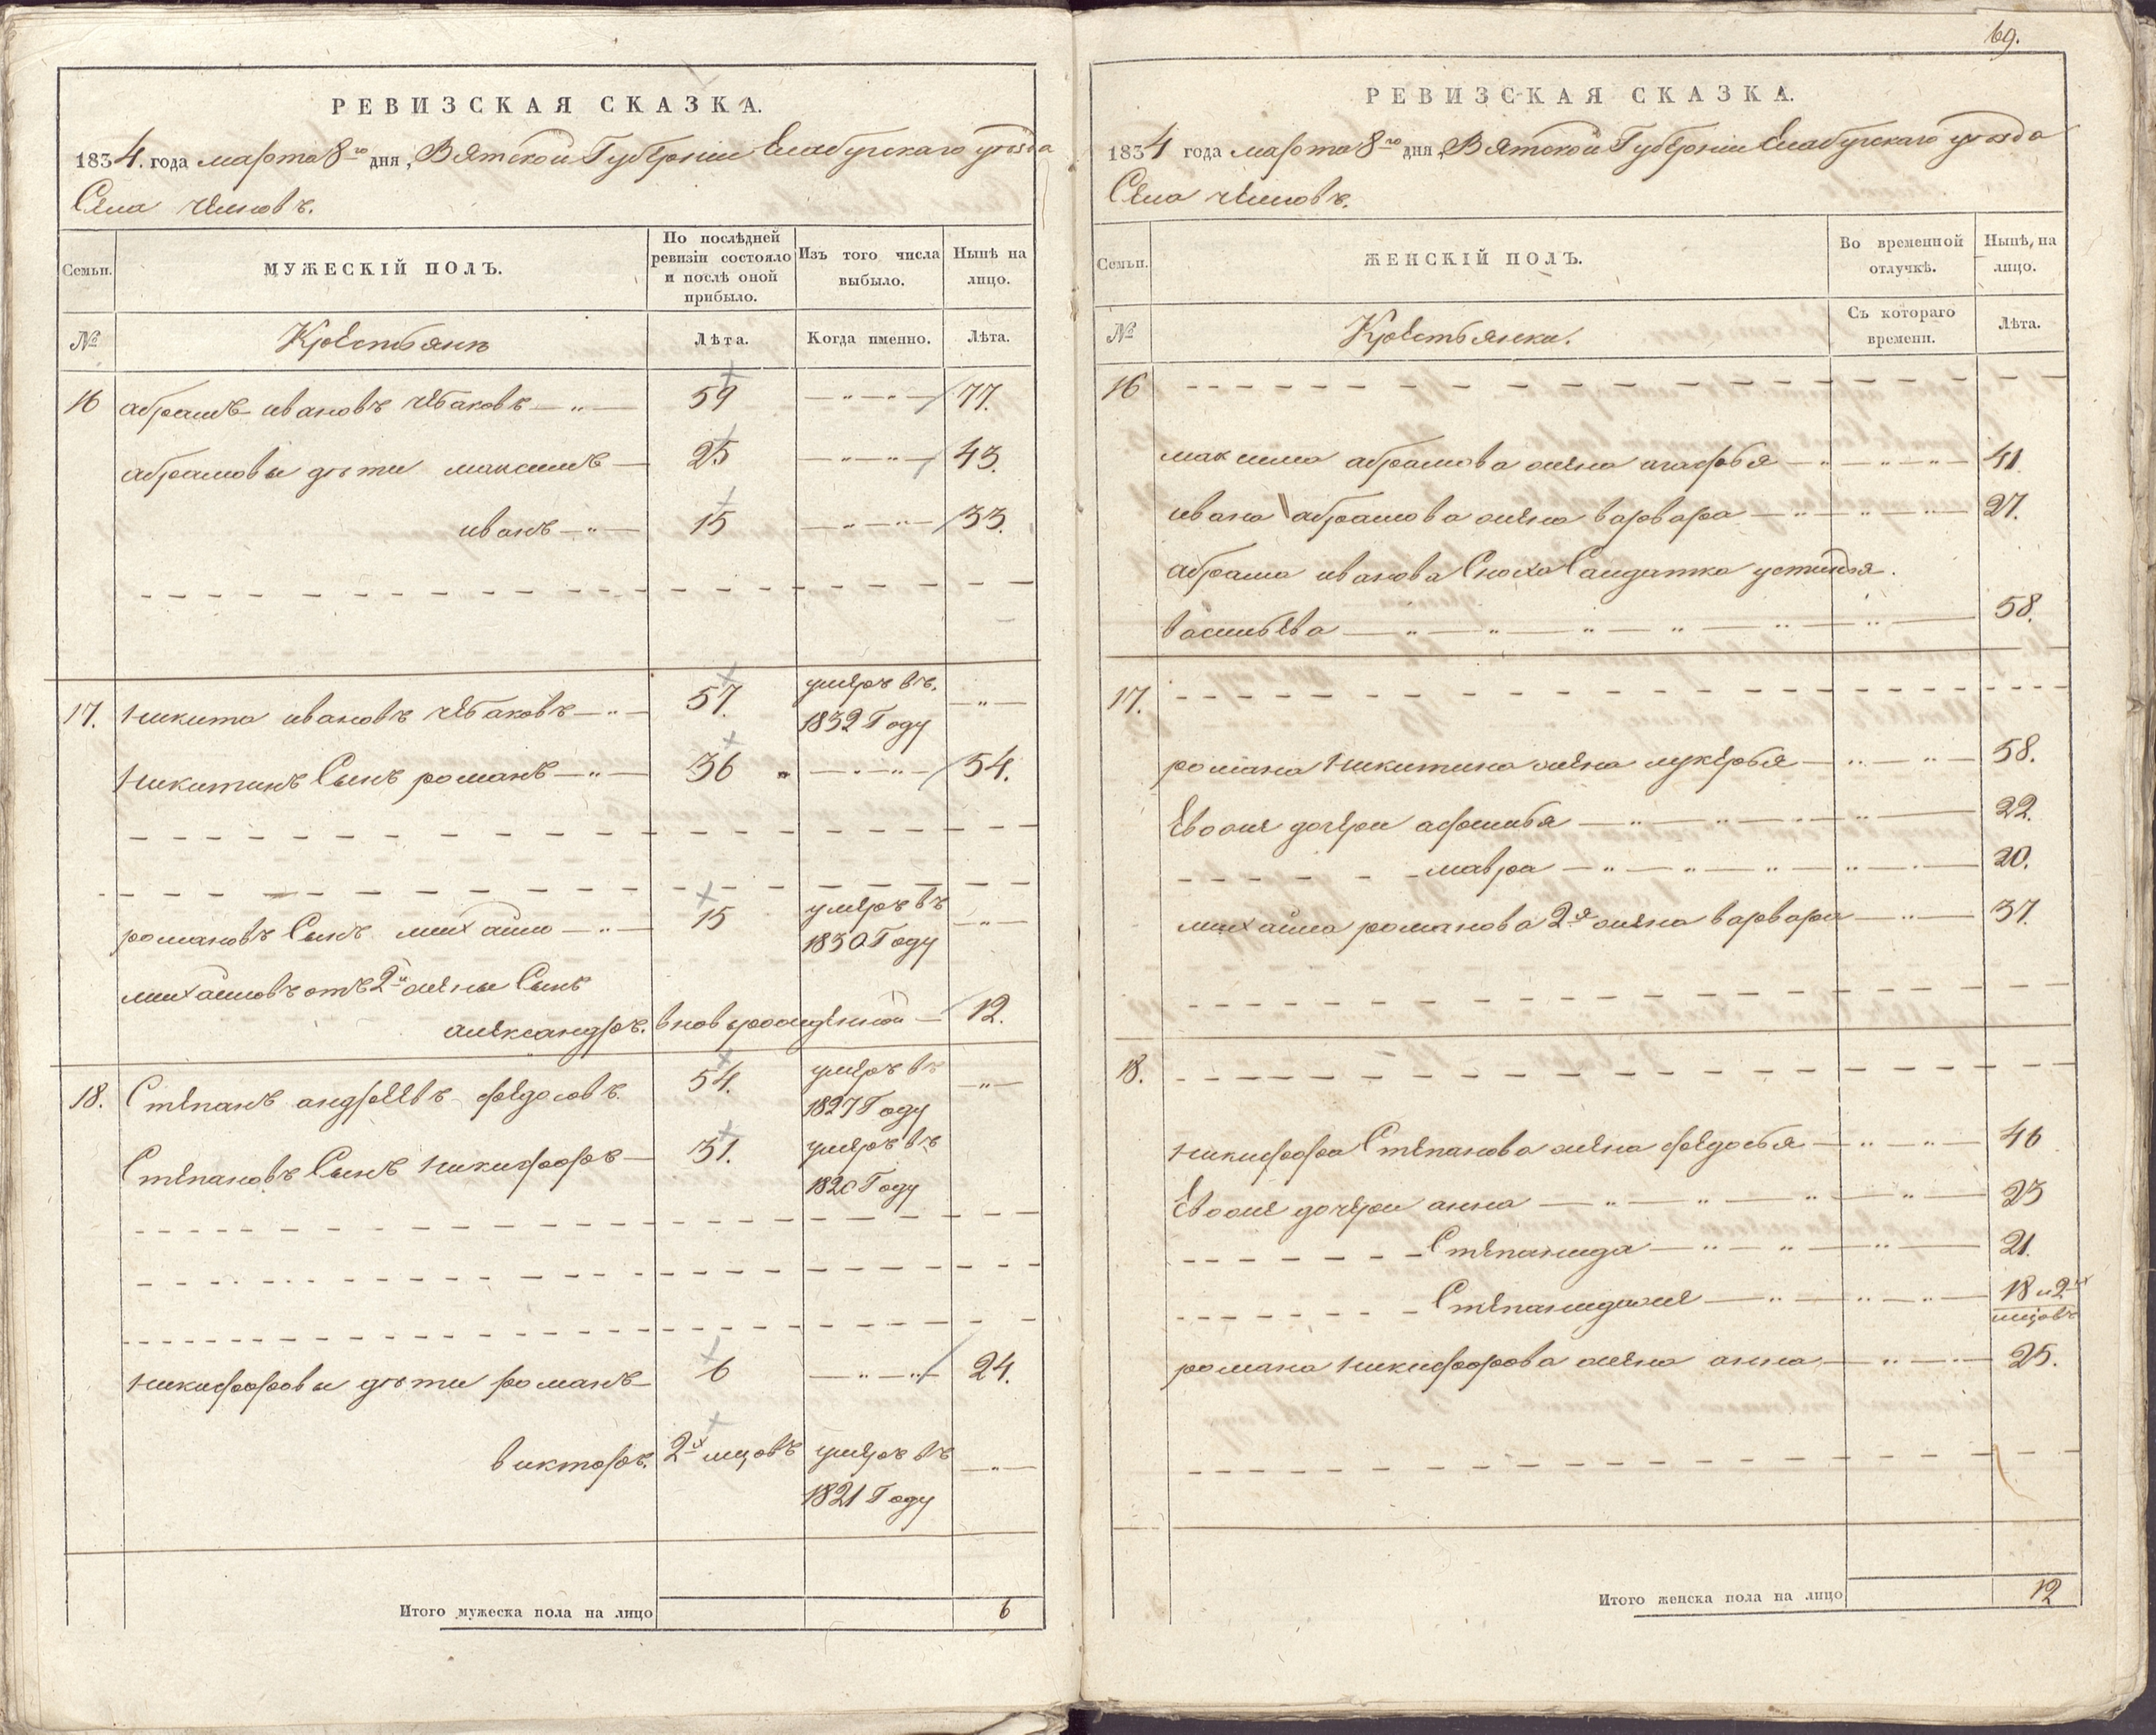 РЕВИЗСКАЯ СКАЗКА.
1834. года марта 8го дня, Вятской Губернiи Елабугскаго уезда
Села Челновъ.
Семьи. МУЖЕСКIЙ ПОЛЪ. По послѣдней ревизiи состояло и послѣ оной прибыло. Изъ того числа выбыло. Нынѣ на лицо.
№ Крестьянъ Лѣта. Когда именно. Лѣта.
16 абрамъ ивановъ чебаковъ — " — 59 — " — " — 77.
абрамовы дѣти максимъ — 25 — " — " — 43.
иванъ — " — 15 — " — " — 33.
17. никита ивановъ чебаковъ — " — 57. умеръ въ 1832 Году — " —
никитинъ Сынъ романъ — " — 36 " — " — " — 54.
романовъ Сынъ михайло — " — 15 умеръ въ 1830 Году — " —
михайловъ отъ 2й жены Сынъ
александръ. вновьрожденной — 12.
18. Степанъ андреевъ федосовъ. 54. умеръ въ 1827 Году — " —
Степановъ Сынъ никифоръ — 31. умеръ въ 1820 Году
никифоровы дѣти романъ — 6 — " — " — 24.
викторъ. 2х мцовъ умеръ въ 1821 Году — " —
Итого мужеска пола на лицо 6
69.
РЕВИЗСКАЯ СКАЗКА.
1834 года марта 8го дня, Вятской Губернiи Елабугскаго уезда
Села Челновъ.
Семьи. ЖЕНСКIЙ ПОЛЪ. Во временной отлучкѣ. Нынѣ, на лицо.
№ Крестьянки. Съ котораго времени. Лѣта.
16
максима абрамова жена агафья — " — " — " — 41.
ивана абрамова жена варвара — " — " — " — 27.
абрама иванова Сноха Салдатка устинья.
васильева — " — " — " — " — " — " — 58.
17.
романа никитина жена лукерья — " — " — 58.
Евоже дочери афимья — " — " — " — " — 22.
мавра — " — " — " — " — 20.
михайла романова 2я жена варвара — " — 37.
18.
никифора Степанова жена федосья — " — " — 46
Евоже дочери анна — " — " — " — " — 23
Степанида — " — " — " — 21.
Степанидаже — " — " — " — 18 и 2х мцовъ
романа никифорова жена анна — " — " — 25.
Итого женска пола на лицо 12